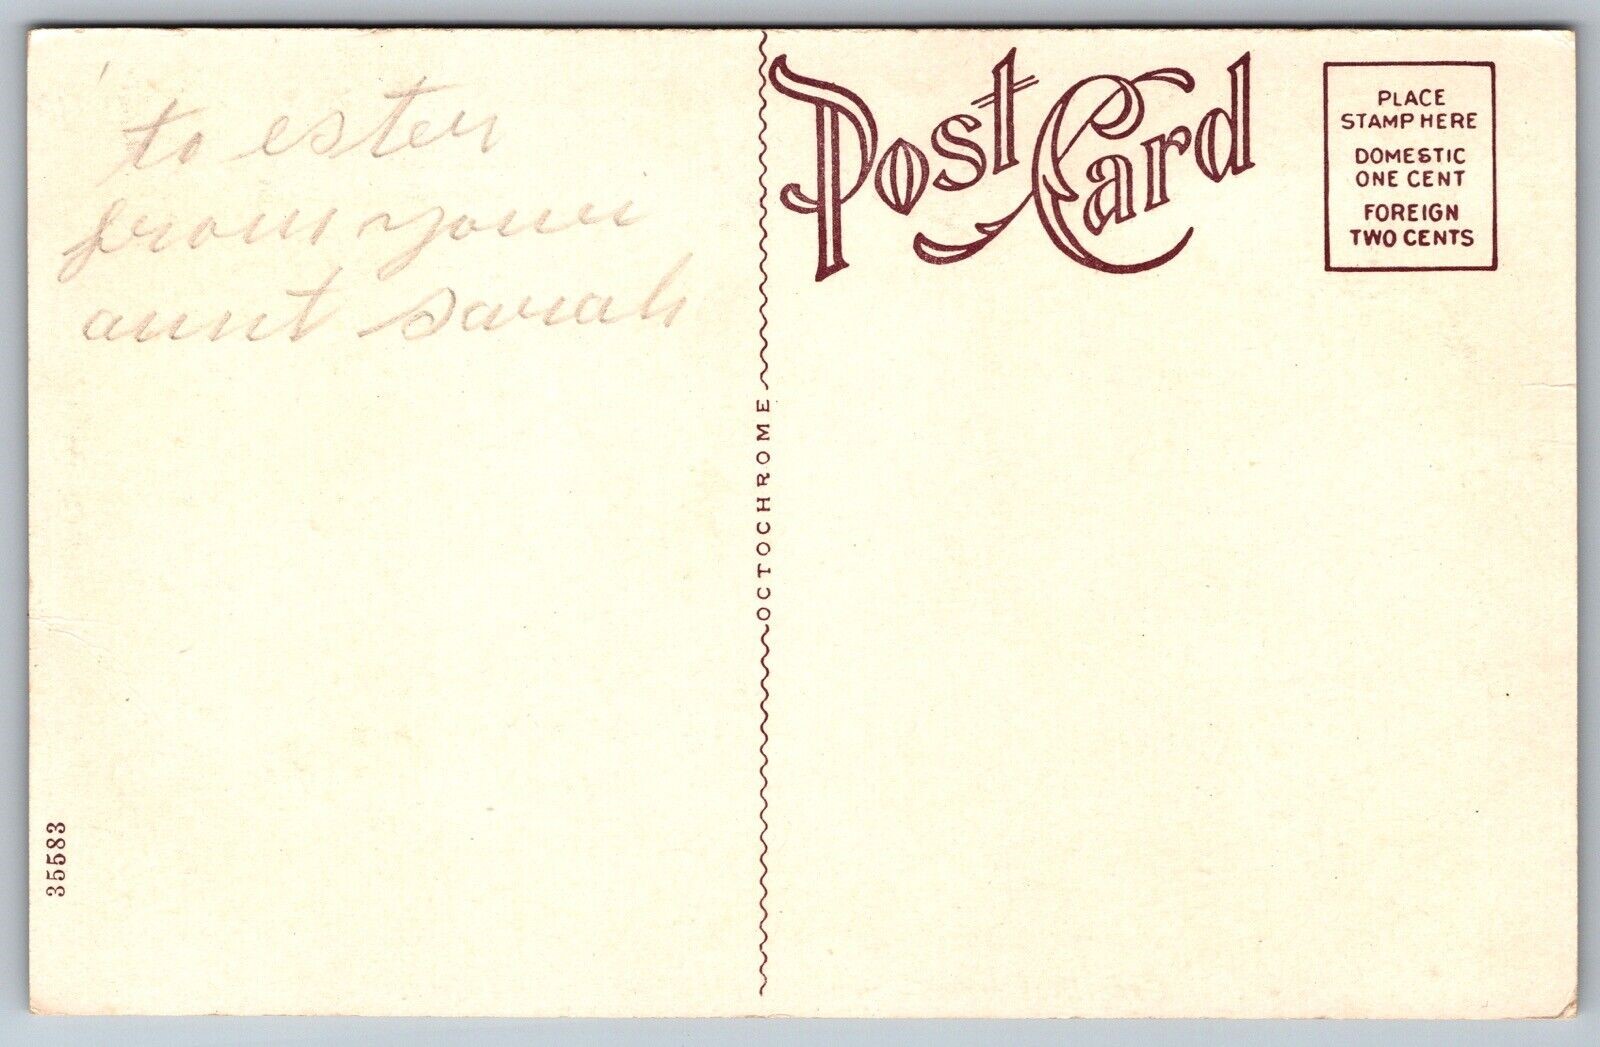 to ester
from your
aunt sarah
35583
OCTOCHROME
Post Card
PLACE
STAMP HERE
DOMESTIC
ONE CENT
FOREIGN
TWO CENTS